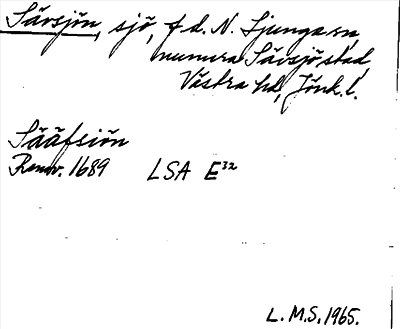 Sävsjön, sjö, f.d. N. Ljunga sn,
numera Sävsjö stad,
Västra hd, Jönk. l.
Sääfsiön
Renov. 1689 LSA E³²
L. M.S. 1965.